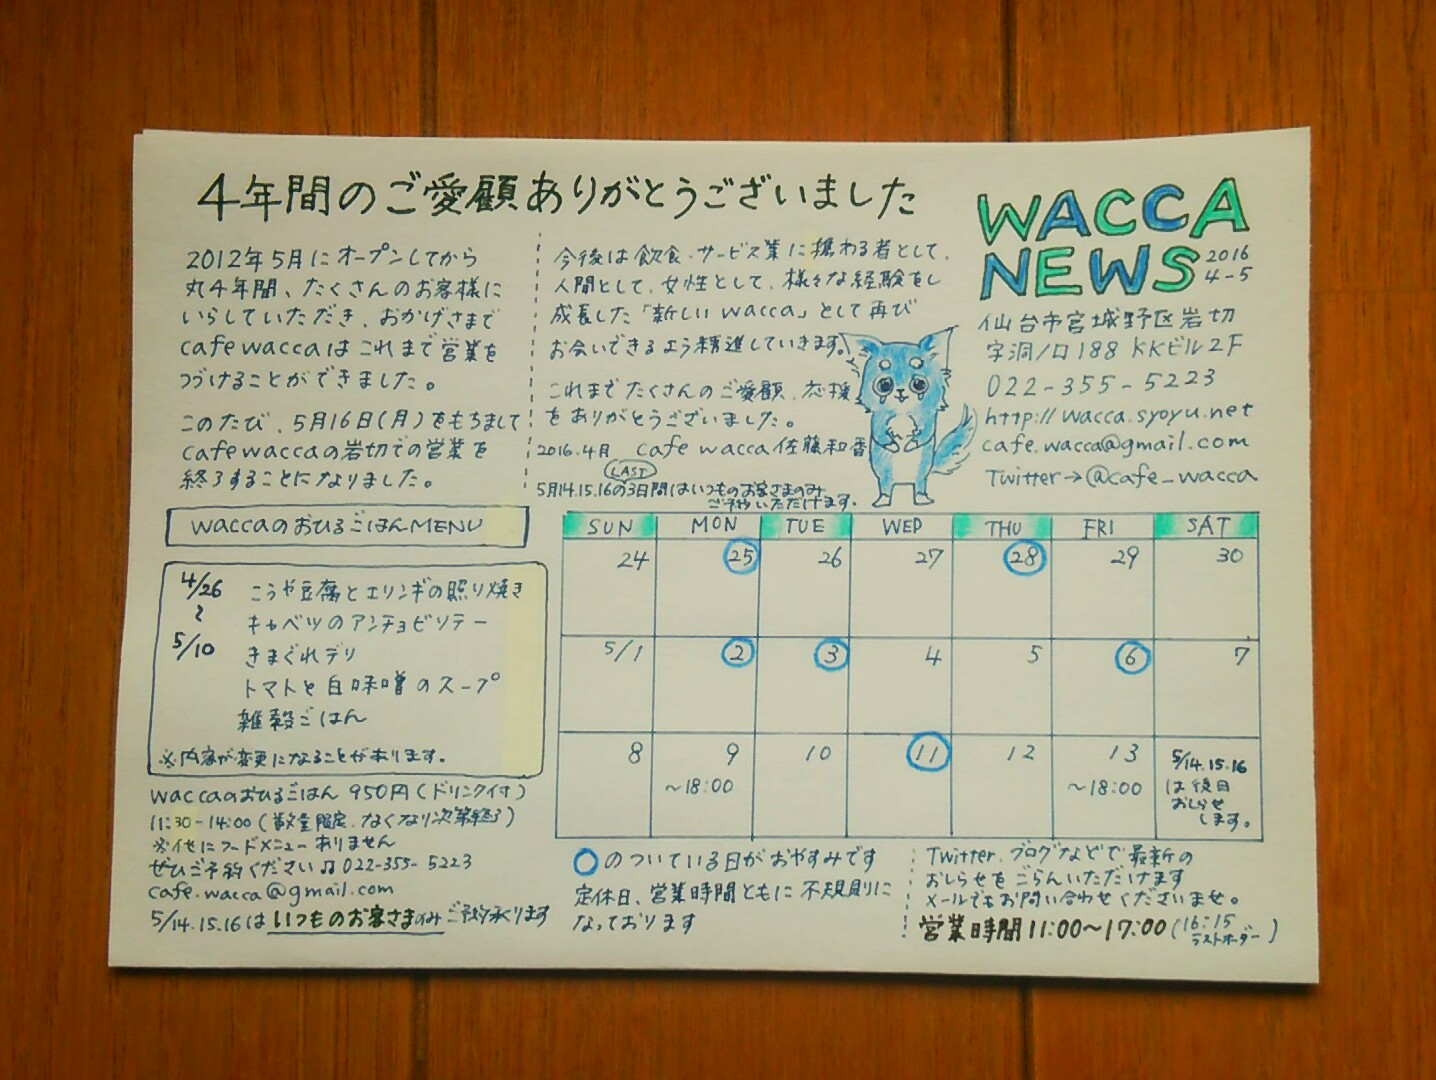 4年間のご愛顧ありがとうございました
WACCA
NEWS
2016
4-5
2012年5月にオープンしてから
丸4年間、たくさんのお客様に
いらしていただき、おかげさまで
cafe waccaはこれまで営業を
つづけることができました。
このたび、5月16日(月)をもちまして
cafe waccaの岩切での営業を
終了することになりました。
今後は飲食・サービス業に携わる者として、
人間として、女性として、様々な経験をし
成長した「新しいwacca」として再び
お会いできるよう精進していきます。
これまでたくさんのご愛顧、応援
をありがとうございました。
2016.4月 cafe wacca 佐藤和香
LAST
5月14.15.16の3日間はいつものお客さまのみ
ご予約いただけます。
仙台市宮城野区岩切
字洞ノ口188 KKビル2F
022-355-5223
http://wacca.syoyu.net
cafe.wacca@gmail.com
Twitter→@cafe_wacca
waccaのおひるごはんMENU
4/26
〜
5/10
こうや豆腐とエリンギの照り焼き
キャベツのアンチョビソテー
きまぐれデリ
トマトと白味噌のスープ
雑穀ごはん
※内容が変更になることがあります。
waccaのおひるごはん 950円(ドリンク付)
11:30-14:00(数量限定、なくなり次第終了)
※他にフードメニューありません
ぜひご予約ください♫ 022-355-5223
cafe.wacca@gmail.com
5/14.15.16はいつものお客さまのみご予約承ります
SUN MON TUE WED THU FRI SAT
24 25 26 27 28 29 30
5/1 2 3 4 5 6 7
8 9 10 11 12 13
〜18:00 〜18:00
5/14.15.16
は後日
おしらせ
します。
○のついている日がおやすみです
定休日、営業時間ともに不規則に
なっております
Twitter、ブログなどで最新の
おしらせをごらんいただけます
メールでもお問い合わせくださいませ。
営業時間11:00〜17:00(16:15
ラストオーダー)